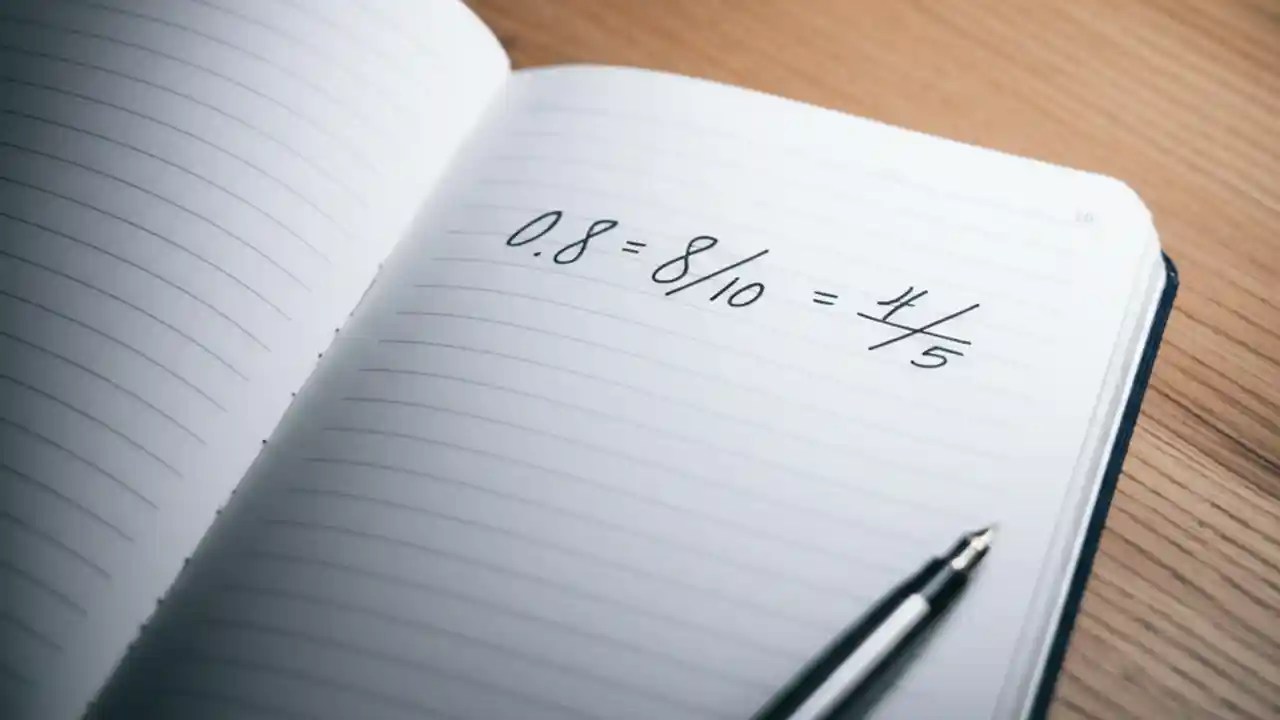 0.8 = 8/10 = 4/5